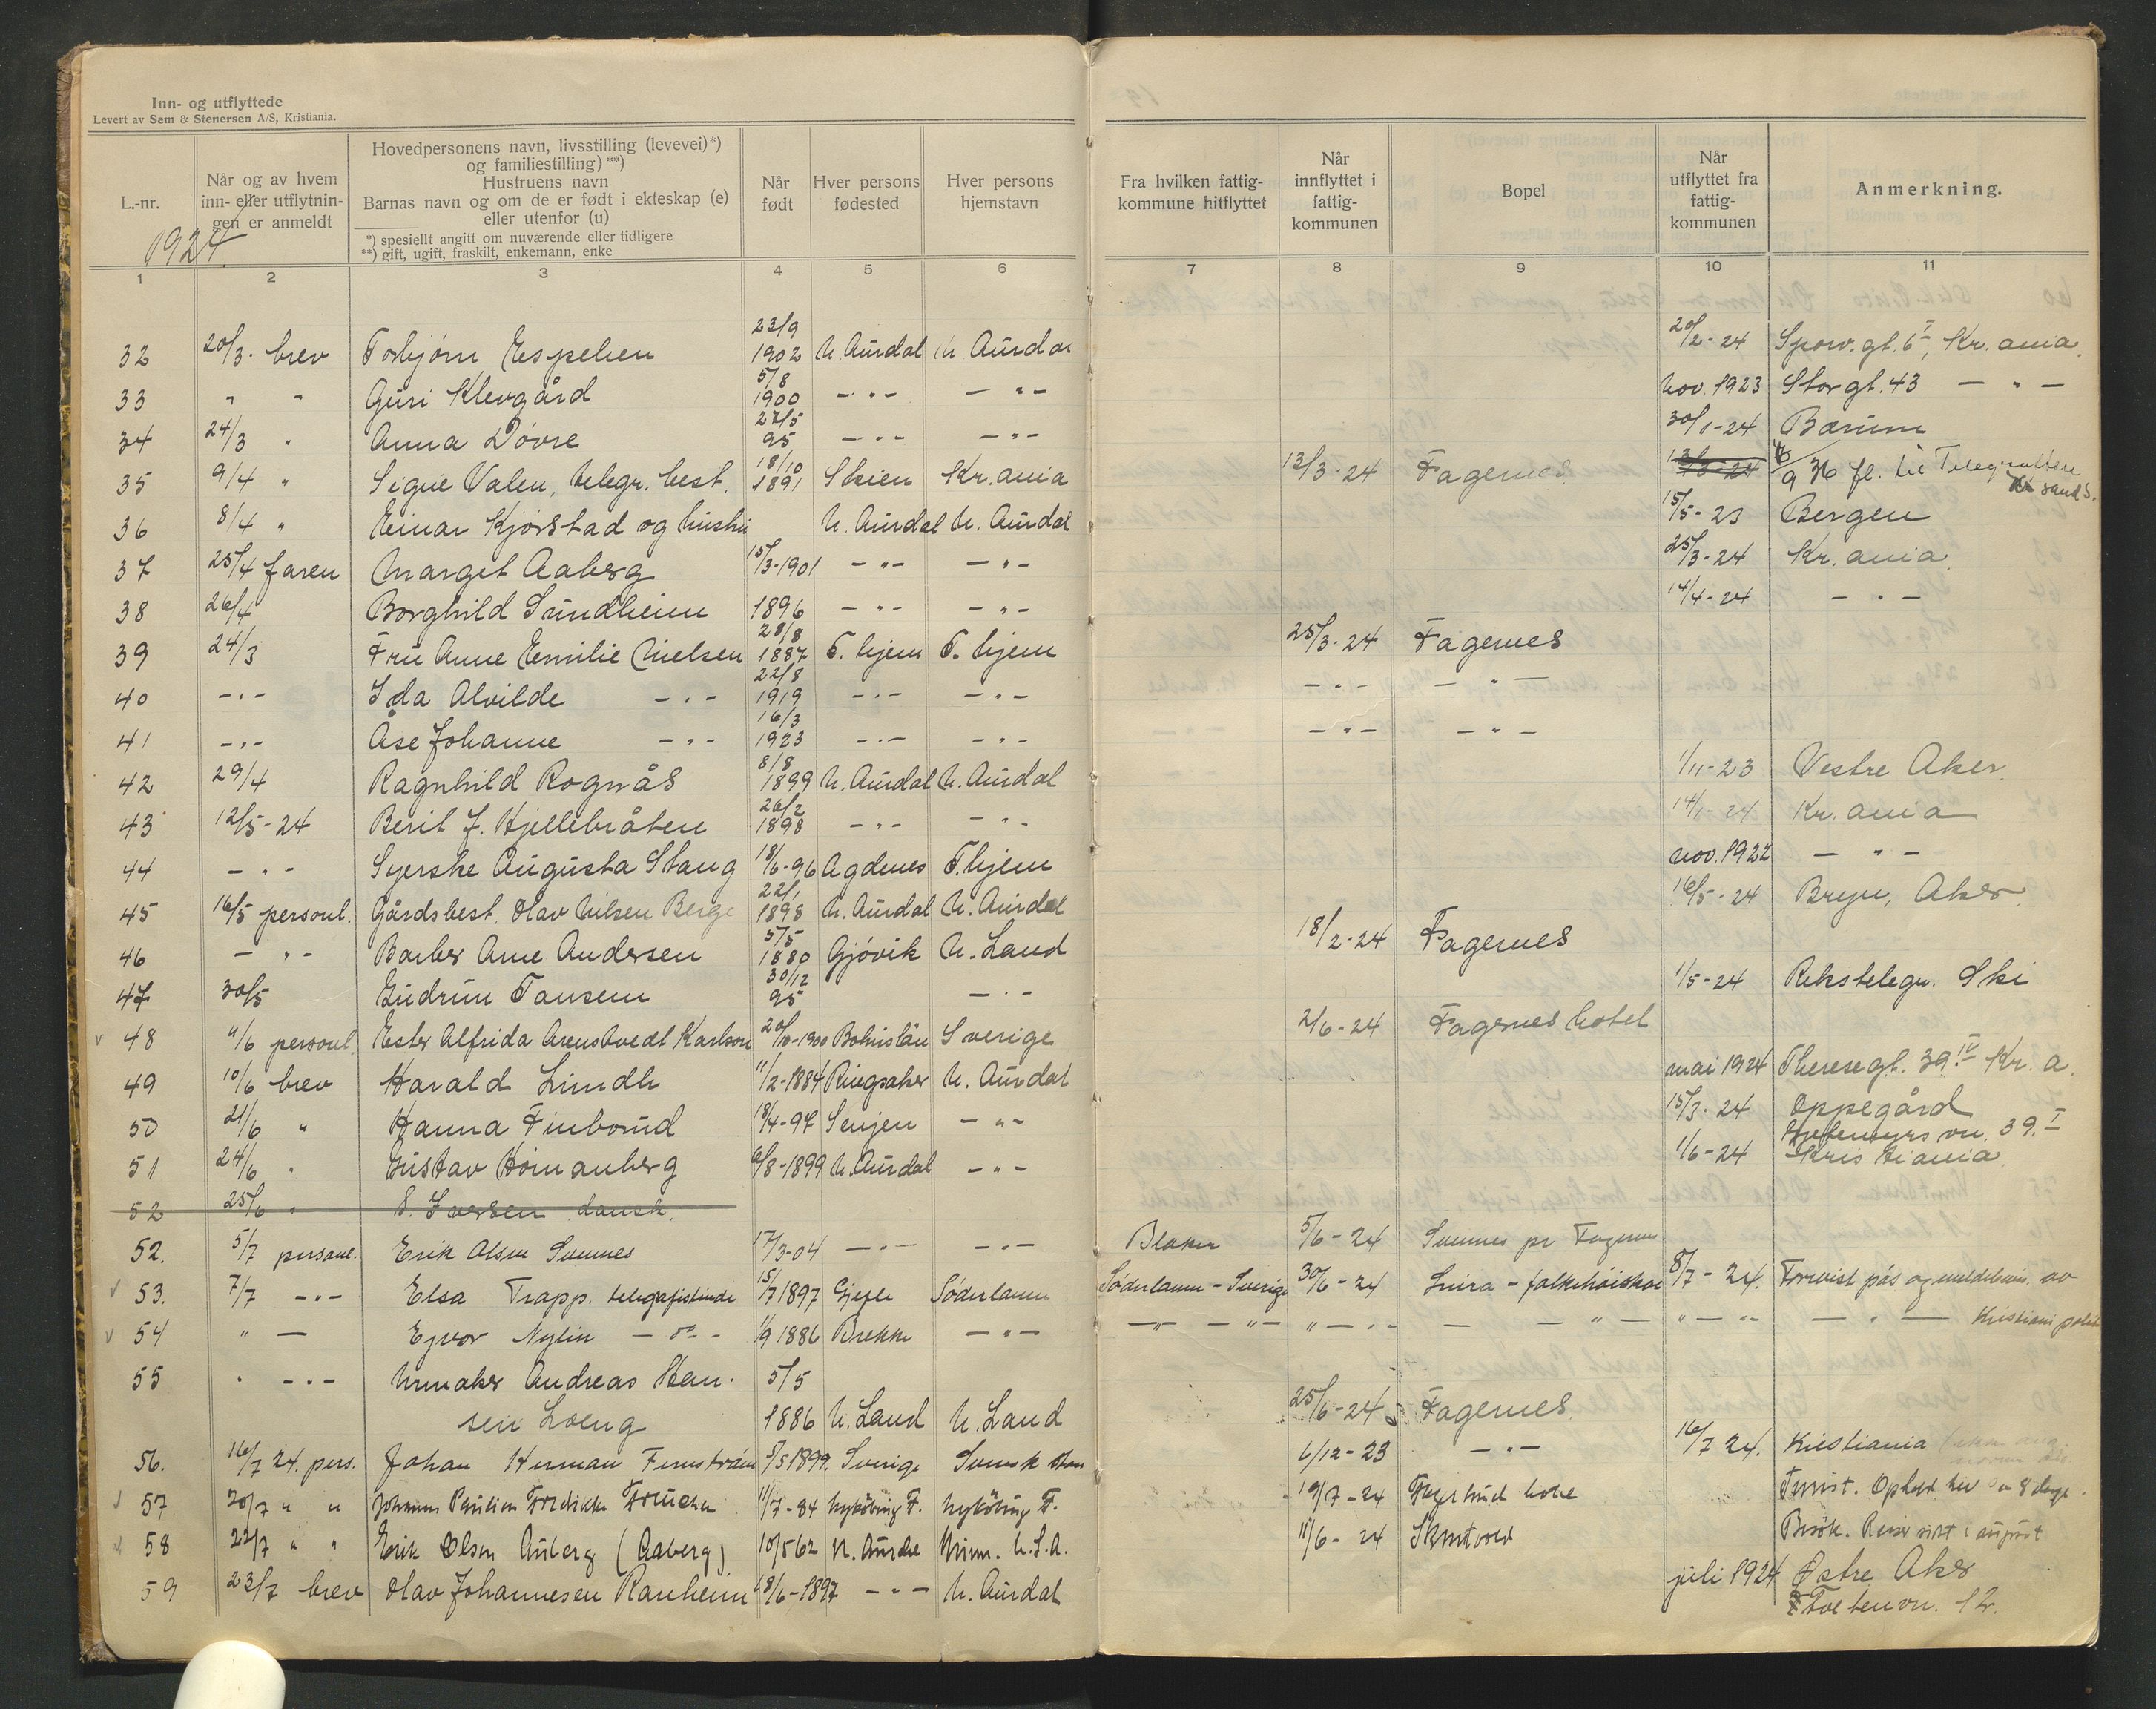 Inn- og utflyttede
Levert av Sem & Stenersen A/S, Kristiania.
L.-nr.
Når og av hvem inn- eller utflytnin-gen er anmeldt
Hovedpersonens navn, livsstilling (levevei)*)
og familiestilling) **)
Hustruens navn
Barnas navn og om de er født i ekteskap (e)
eller utenfor (u)
*) spesiellt angitt om nuværende eller tidligere
**) gift, ugift, fraskilt, enkemann, enke
Når født
Hver persons fødested
Hver persons hjemstavn
Fra hvilken fattig-kommune hitflyttet
Når innflyttet i fattig-kommunen
Bopel
Når utflyttet fra fattig-kommunen
Anmerkning.
1924
1 2 3 4 5 6 7 8 9 10 11
32 20/3. brev Torbjørn Espelien 23/9 1902 N. Aurdal N. Aurdal 20/2-24 Kr.ania.
33 " " Guri Klevgård 5/8 1900 - " - - " - nov. 1923 Storgt. 43 - " -
34 24/3 " Anna Døvre 27/5 95 - " - - " - 30/1-24 Bærum
35 9/4 " Signe Valen, telegr. best. 18/10 1891 Skien Kr.ania 13/3-24 Fagernes fl. til
36 8/4 " Einar Kjørstad og hustru N. Aurdal N. Aurdal 15/5-23 Bergen
37 25/4 faren Marget Aaberg 15/3-1901 - " - - " - 25/3-24 Kr.ania.
38 26/4 Borghild Sundheim 1896 - " - - " - 14/4-24 - " -
39 24/3 Fru Anne Emilie Nielsen 28/8 1887 T. hjem T. hjem 25/3-24 Fagernes
40 - " - Ida Alvilde - " - 22/8 1919 - " - - " - - " - - " -
41 - " - Åse Johanne - " - 16/3 1923 - " - - " - - " - - " -
42 29/4 Ragnhild Rognås 8/8 1899 N. Aurdal N. Aurdal 1/11-23 Vestre Aker.
43 12/5-24 Berit J. Hjellebråten 26/2 1898 - " - - " - 14/1-24 Kr.ania
44 - " - Syerske Augusta Stang 18/6-96 Agdenes T.hjem nov. 1922 - " -
45 16/5 personl. Gårdsbest. Olav Nilsen Berge 22/1 1898 N. Aurdal N. Aurdal 16/5-24 Bryn, Aker.
46 - " - Barber Arne Andersen 5/5 1880 Gjøvik N. Land 18/2-24 Fagernes
47 30/5 Gudrun Tansem 30/12 95 - " - 1/5-24 Rikstelegr. Ski
48 personl. Ester Alfrida Arenstvedt Karlson 20/10-1900 Bohuslän Sverige 2/6-24 Fagernes hotel
49 10/6 brev Harald Lindh 11/2-1884 Ringsaker N. Aurdal mai 1924 Theresegt. 39 IV Kr.a.
50 21/6 " Hanna Finborud 18/4-97 Senjen - " - 15/3-24 Oppegård
51 24/6 " Gustav 6/8-1899 N. Aurdal - " - 1/6-24 vn. 39. I
Kristiania
52 25/6 " S. Iversen dansk.
52. 5/7 personl. Erik Olsen Svennes 17/3-04 - " - - " - Blaker 5/6-24 Svennes pr Fagernes
53. 7/7 - " - Elsa Trapp. telegrafistinde 15/7 1897 Gjefle Söderhamn Söderhamn - Sverige 30/6-24 folkehöiskole 8/7-24. Forevist pas av
54 " - Nylin - do - 1/9 1886 Brekke - " - - " - - " - " - " - - " - " - " - - " - Kristiania politi
55 " - " - Urmaker Andreas Han- 5/5
sen Loeng 1886 N. Land N. Land 25/6-24 Fagernes
56. 16/7 24. pers. Johan Herman 5/5 1899. Sverige Svensk 6/12-23 - " - 16/7 24. Kristiania
57 20/7 " " 11/7-84 Nykøbing F. Nykøbing F. 19/7-24 Turist. 8 dage.
58 22/7 " " Erik Olsen Auberg (Aaberg) 10/5 62 N. Aurdal Minn. U.S.A. 11/6-24 Besök. Reiser sidst i august
59 23/7 brev Olav Johannesen Ranheim 18/6-1897 - " - N. Aurdal juli 1924 Østre Aker